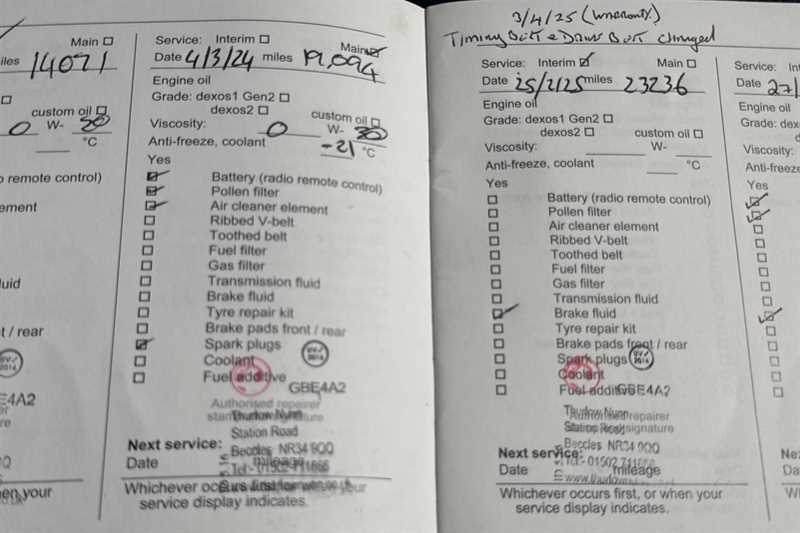 Main
miles 14071
custom oil
0 W- 30
°C
o remote control)
ement
uid
nt / rear
E4A2
hen your
Service: Interim Main
Date 4/3/24 miles 19,094
Engine oil
Grade: dexos1 Gen2
dexos2 custom oil
Viscosity: 0 W- 30
Anti-freeze, coolant -21 °C
Yes
Battery (radio remote control)
Pollen filter
Air cleaner element
Ribbed V-belt
Toothed belt
Fuel filter
Gas filter
Transmission fluid
Brake fluid
Tyre repair kit
Brake pads front / rear
Spark plugs
Coolant
Fuel additive
GBE4A2
Authorised repairer
Thurlow Nunn
Station Road
Next service: Beccles NR34 9QQ
Date mileage
Whichever occurs first, or when your
service display indicates.
3/4/25 (warranty)
Timing Belt & Drive Belt changed
Service: Interim Main
Date 25/2/25 miles 23236
Engine oil
Grade: dexos1 Gen2
dexos2 custom oil
Viscosity: W-
Anti-freeze, coolant °C
Yes
Battery (radio remote control)
Pollen filter
Air cleaner element
Ribbed V-belt
Toothed belt
Fuel filter
Gas filter
Transmission fluid
Brake fluid
Tyre repair kit
Brake pads front / rear
Spark plugs
Coolant
Fuel additive GBE4A2
Authorised repairer
Thurlow Nunn
Station Road signature
Beccles NR34 9QQ
Next service: Tel:- 01502 711
Date mileage
Whichever occurs first, or when your
service display indicates.
Service: Int
Date 27/
Engine oil
Grade: dexo
dexo
Viscosity:
Anti-freeze
Yes